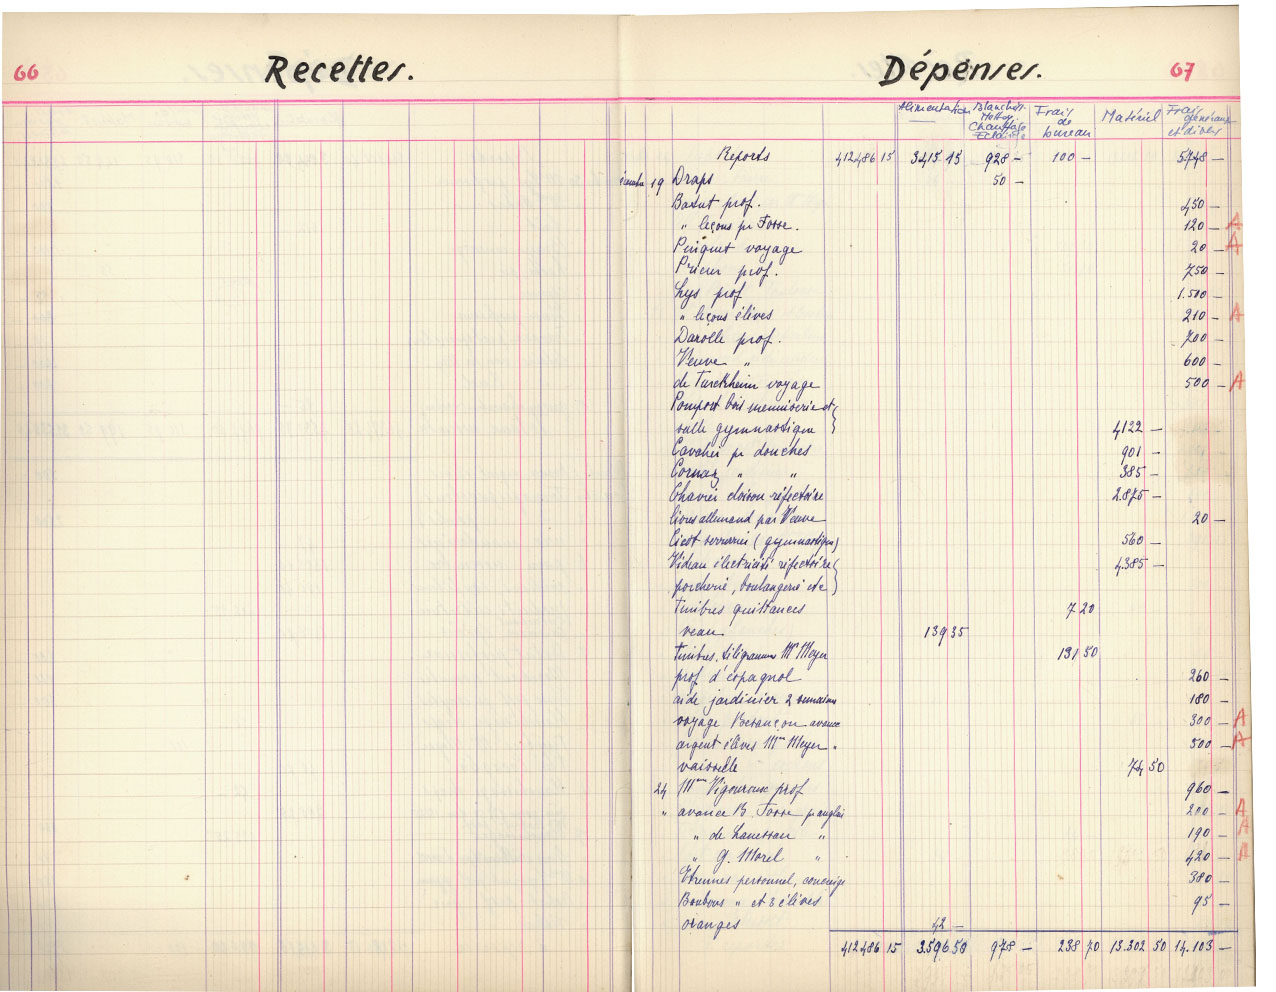 66 Recettes.
Dépenses. 67
Alimentation Blanchis. Frais Matériel Frais
Chauffage de généraux
Eclairage bureau et divers
Reports 412486 15 3415 15 928 — 100 — 5748 —
19 Draps 50 —
prof. 450 —
" leçons pr Fosse. 120 — A
voyage 20 — A
Prieur prof. 750 —
Lys prof 1.500 —
" leçons élèves 210 — A
Darolle prof. 700 —
Veuve " 600 —
de Turckheim voyage 500 — A
bois menuiserie et
salle gymnastique 4122 —
Cavalier pr douches 901 —
Cornaz " " 385 —
cloison réfectoire 2.875 —
livres allemand par Veuve 20 —
serrurier (gymnastique) 560 —
Videau électricité réfectoire
porcherie, boulangerie etc 4.385 —
timbres quittances 7 20
veau 139 35
timbres, télégrammes Mr Meyer 131 50
prof d'espagnol 260 —
aide jardinier 2 semaines 180 —
voyage Besançon avance 300 — A
argent élèves Mme Meyer. 500 — A
vaisselle 74 50
24 Mme Vigoureux prof 960 —
" avance B. Fosse pr anglais 200 — A
" de Lanessan " 190 — A
" G. Morel " 420 — A
Etrennes personnel, concierge 380 —
Bonbons " et 3 élèves 95 —
oranges 42 —
412486 15 3.596 50 978 — 238 70 13.302 50 14.103 —